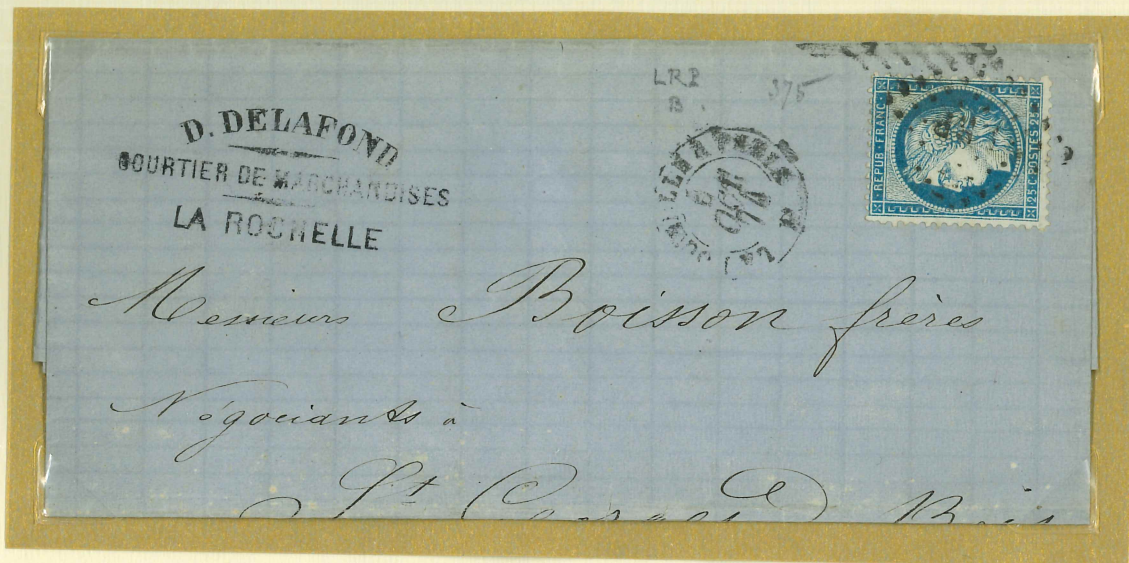 D. DELAFOND
COURTIER DE MARCHANDISES
LA ROCHELLE
LRP
B.
375
REPUB. FRANC.
25 C. POSTES 25 C.
Messieurs Boisson frères
Négociants à
St Georges